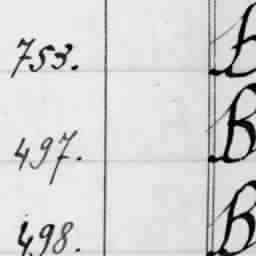 753. B
497. B
498. B